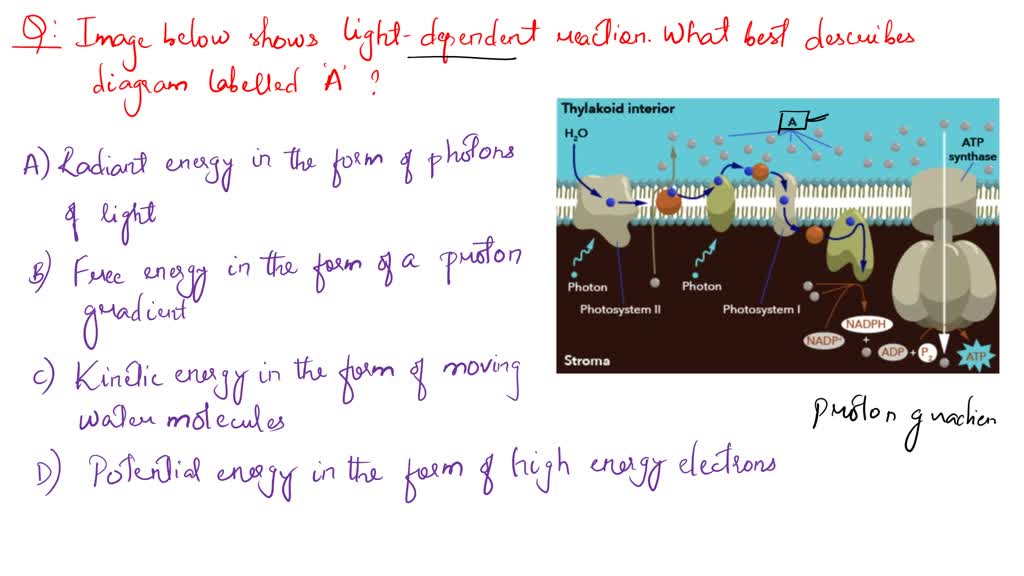 Q: Image below shows light-dependent reaction. What best describes
diagram labelled 'A' ?
A) Radiant energy in the form of photons
of light
B) Free energy in the form of a proton
gradient
C) Kinetic energy in the form of moving
water molecules
D) Potential energy in the form of high energy electrons
Thylakoid interior
A
H₂O
ATP
synthase
Photon
Photon
Photosystem II
Photosystem I
NADPH
NADP⁺
+
ADP + P₂
ATP
Stroma
Proton gradien